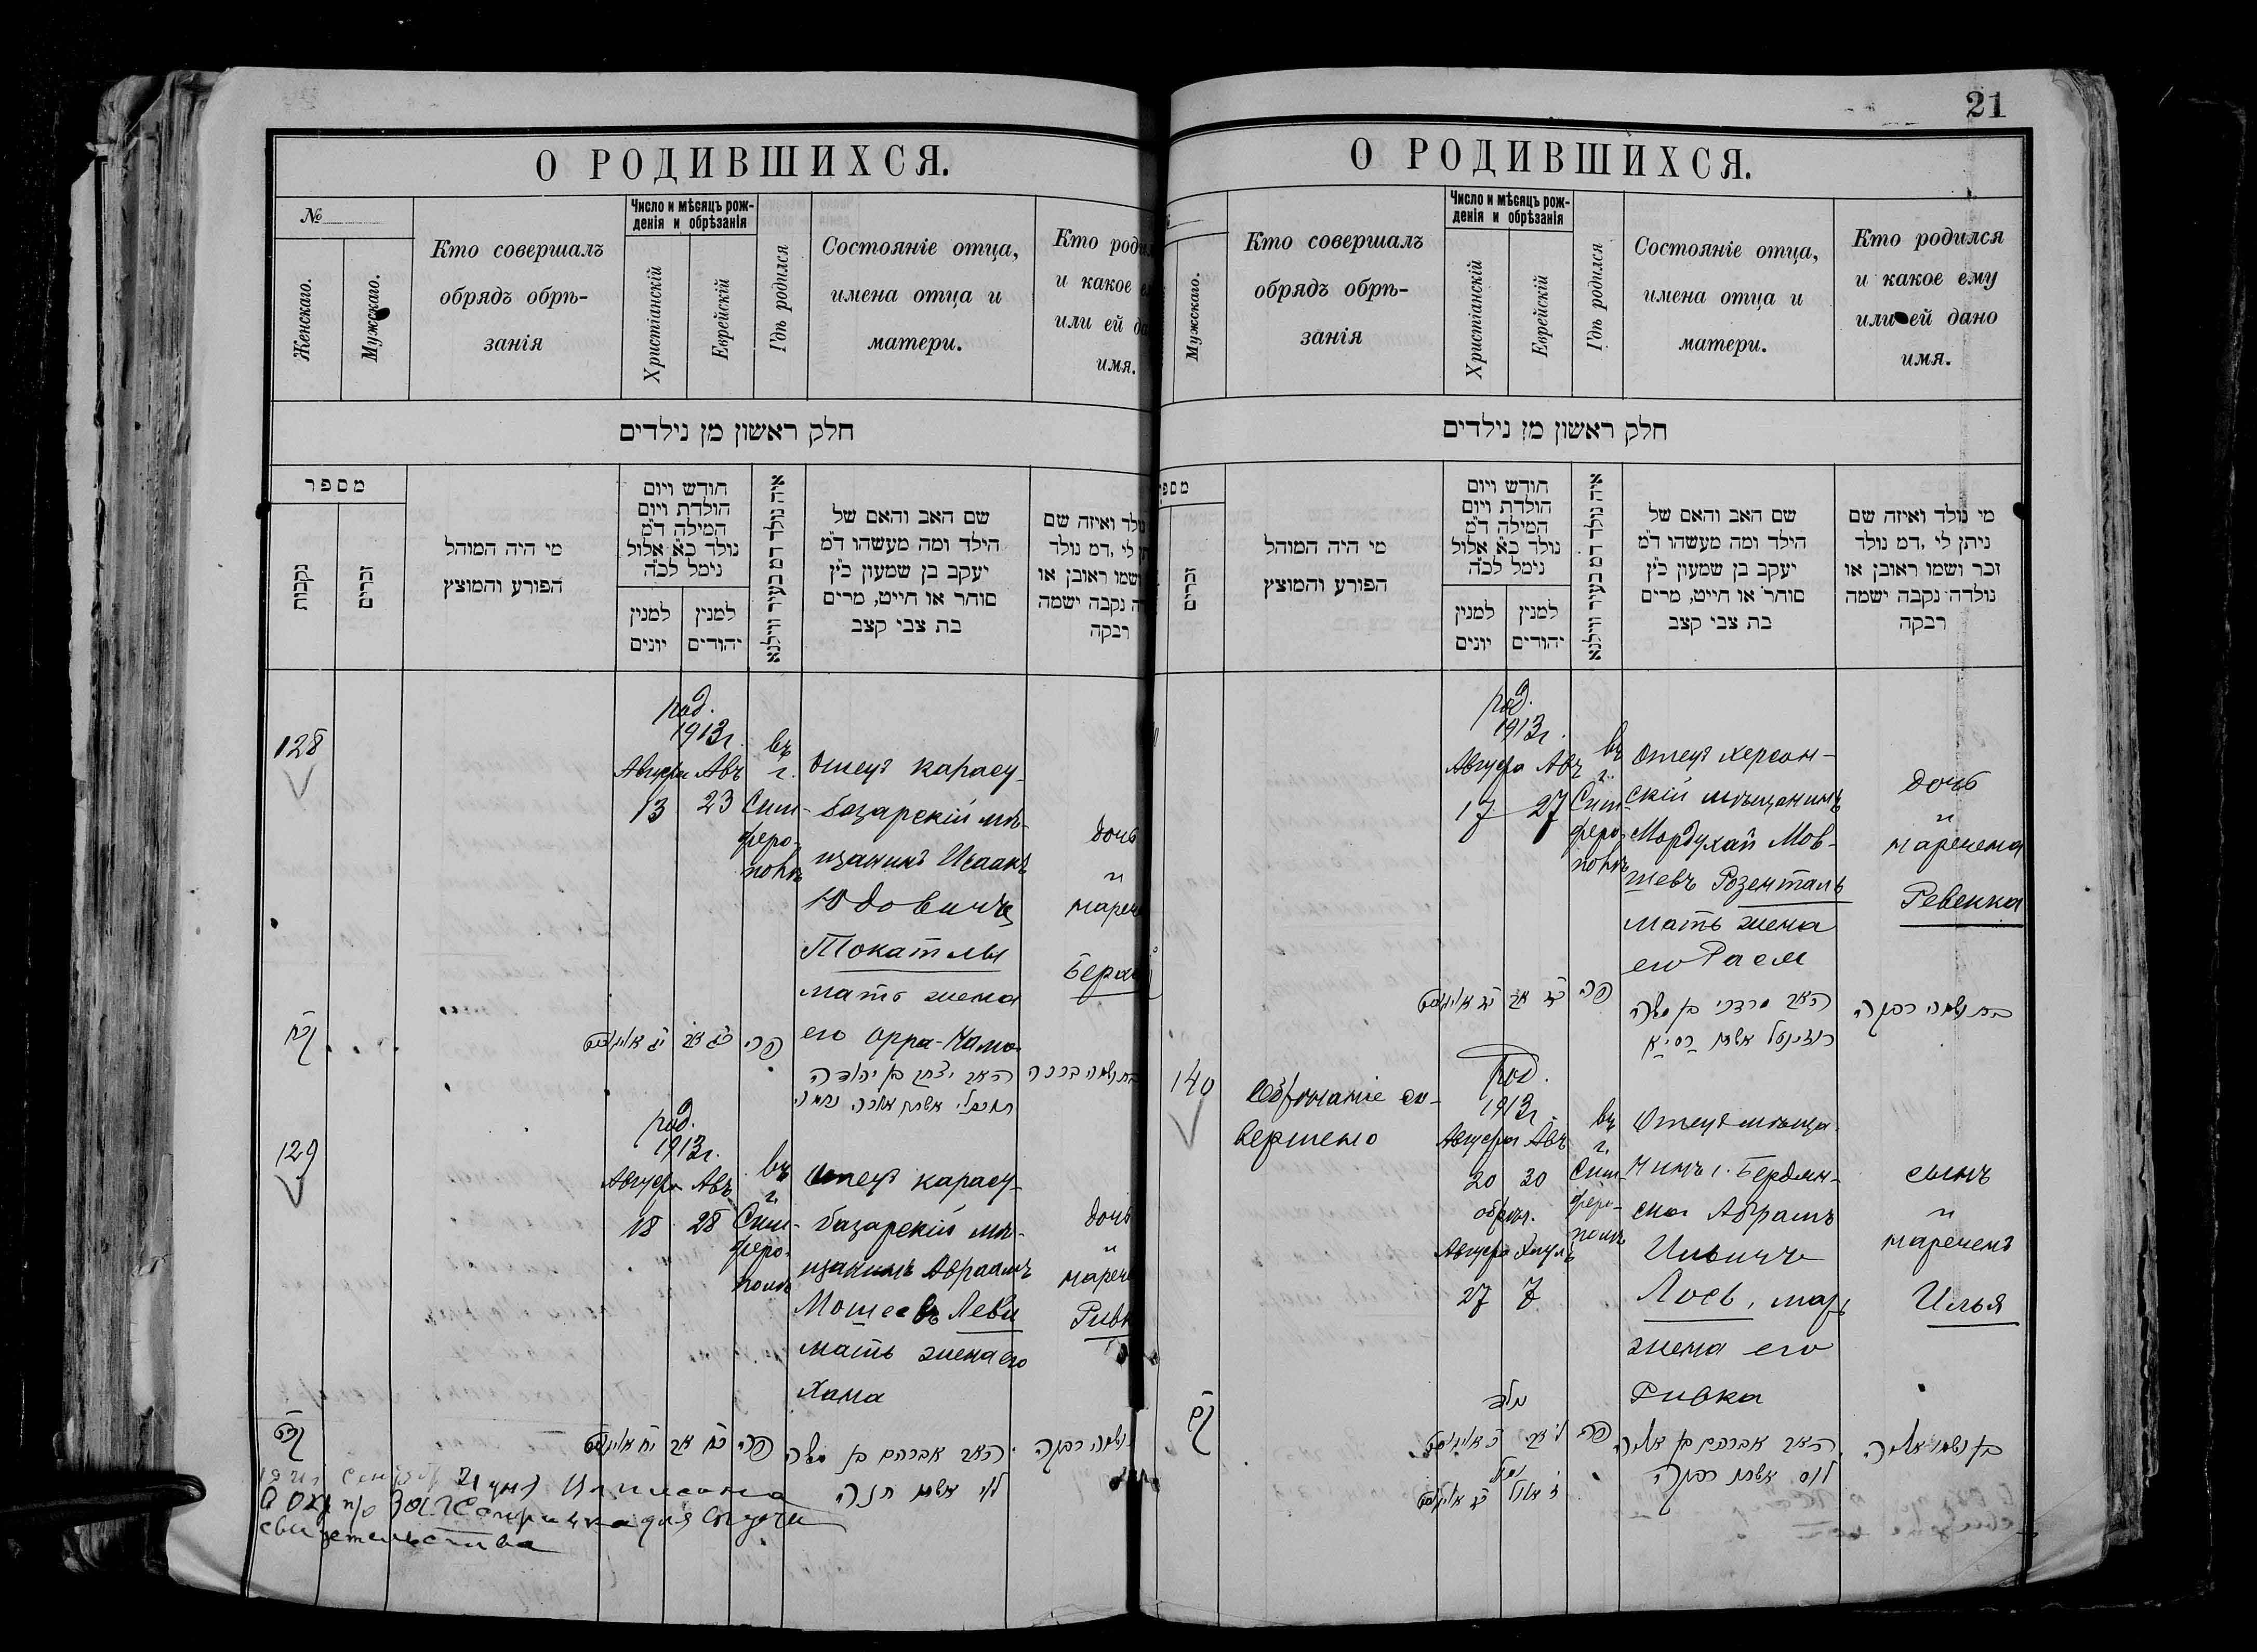 О РОДИВШИХСЯ.
№
Женскаго.
Мужскаго.
Кто совершалъ
обрядъ обрѣ-
занія
Число и мѣсяцъ рож-
денія и обрѣзанія
Христіанскій
Еврейскій
Гдѣ родился
Состояніе отца,
имена отца и
матери.
Кто роди
и какое
или ей да
имя.
חלק ראשון מן נילדים
מספר
נקבות
זכרים
מי היה המוהל
הפורע והמוצץ
חודש ויום
הולדת ויום
המילה ד"מ
נולד כ"א אלול
נימל לכ"ה
למנין
יונים
למנין
יהודים
איה נולד דמ בעיר ווילנא
שם האב והאם של
הילד ומה מעשהו ד"מ
יעקב בן שמעון כ"ץ
סוחר או חייט, מרים
בת צבי קצב
ולד ואיזה שם
לי ,דמ נולד
ושמו ראובן או
נקבה ישמה
רבקה
128
род.
1913г.
Августа Авъ
13 23
въ
г.
Сим-
феро-
полѣ
Отецъ карасу-
базарскій мѣ-
щанинъ Исаакъ
Юдовичъ
Токатлы
мать жена
его
дочь
и
нареч
קכח
כג אב
פה
האב יצחק בן יהודה
129
род.
1913г.
Августа Авъ
18 28
въ
г.
Сим-
феро-
полѣ
Отецъ карасу-
базарскій мѣ-
щанинъ Авраамъ
Мошеевъ Леви
мать жена его
Хана
дочь
и
нареч
Ривк
קכט
יח אויגוסט
כח אב
פה
האב אברהם בן משה
לוי אשתו חנה
ושמה רבקה
для выдачи
свидетельства
21
О РОДИВШИХСЯ.
Мужскаго.
Кто совершалъ
обрядъ обрѣ-
занія
Число и мѣсяцъ рож-
денія и обрѣзанія
Христіанскій
Еврейскій
Гдѣ родился
Состояніе отца,
имена отца и
матери.
Кто родился
и какое ему
или ей дано
имя.
חלק ראשון מן נילדים
מספ
זכרים
מי היה המוהל
הפורע והמוצץ
חודש ויום
הולדת ויום
המילה ד"מ
נולד כ"א אלול
נימל לכ"ה
למנין
יונים
למנין
יהודים
איה נולד דמ בעיר ווילנא
שם האב והאם של
הילד ומה מעשהו ד"מ
יעקב בן שמעון כ"ץ
סוחר או חייט, מרים
בת צבי קצב
מי נולד ואיזה שם
ניתן לי ,דמ נולד
זכר ושמו ראובן או
נולדה נקבה ישמה
רבקה
род.
1913г.
Августа Авъ
17 27
въ
г.
Сим-
феро-
полѣ
Отецъ херсон-
скій мѣщанинъ
Мордухай Мов-
шевъ Розенталь
мать жена
его
дочь
и
наречена
Ревекка
פה
האב מרדכי בן משה
רוזינטל אשתו
בת ושמה רבקה
140
Обрѣзаніе со-
вершено
род.
1913г.
Августа Авъ
20 30
обрѣз.
Августа Элулъ
27 7
въ
г.
Сим-
феро-
полѣ
Отецъ мѣща-
нинъ г. Бердян-
ска Абрамъ
Ильичъ
Лоевъ, мать
жена его
Ривка
сынъ
и
нареченъ
Илья
קמ
נולד
ל אב
פה
האב אברהם בן אליה
אשתו רבקה
נימול
ז אלול
בן ושמו אליה